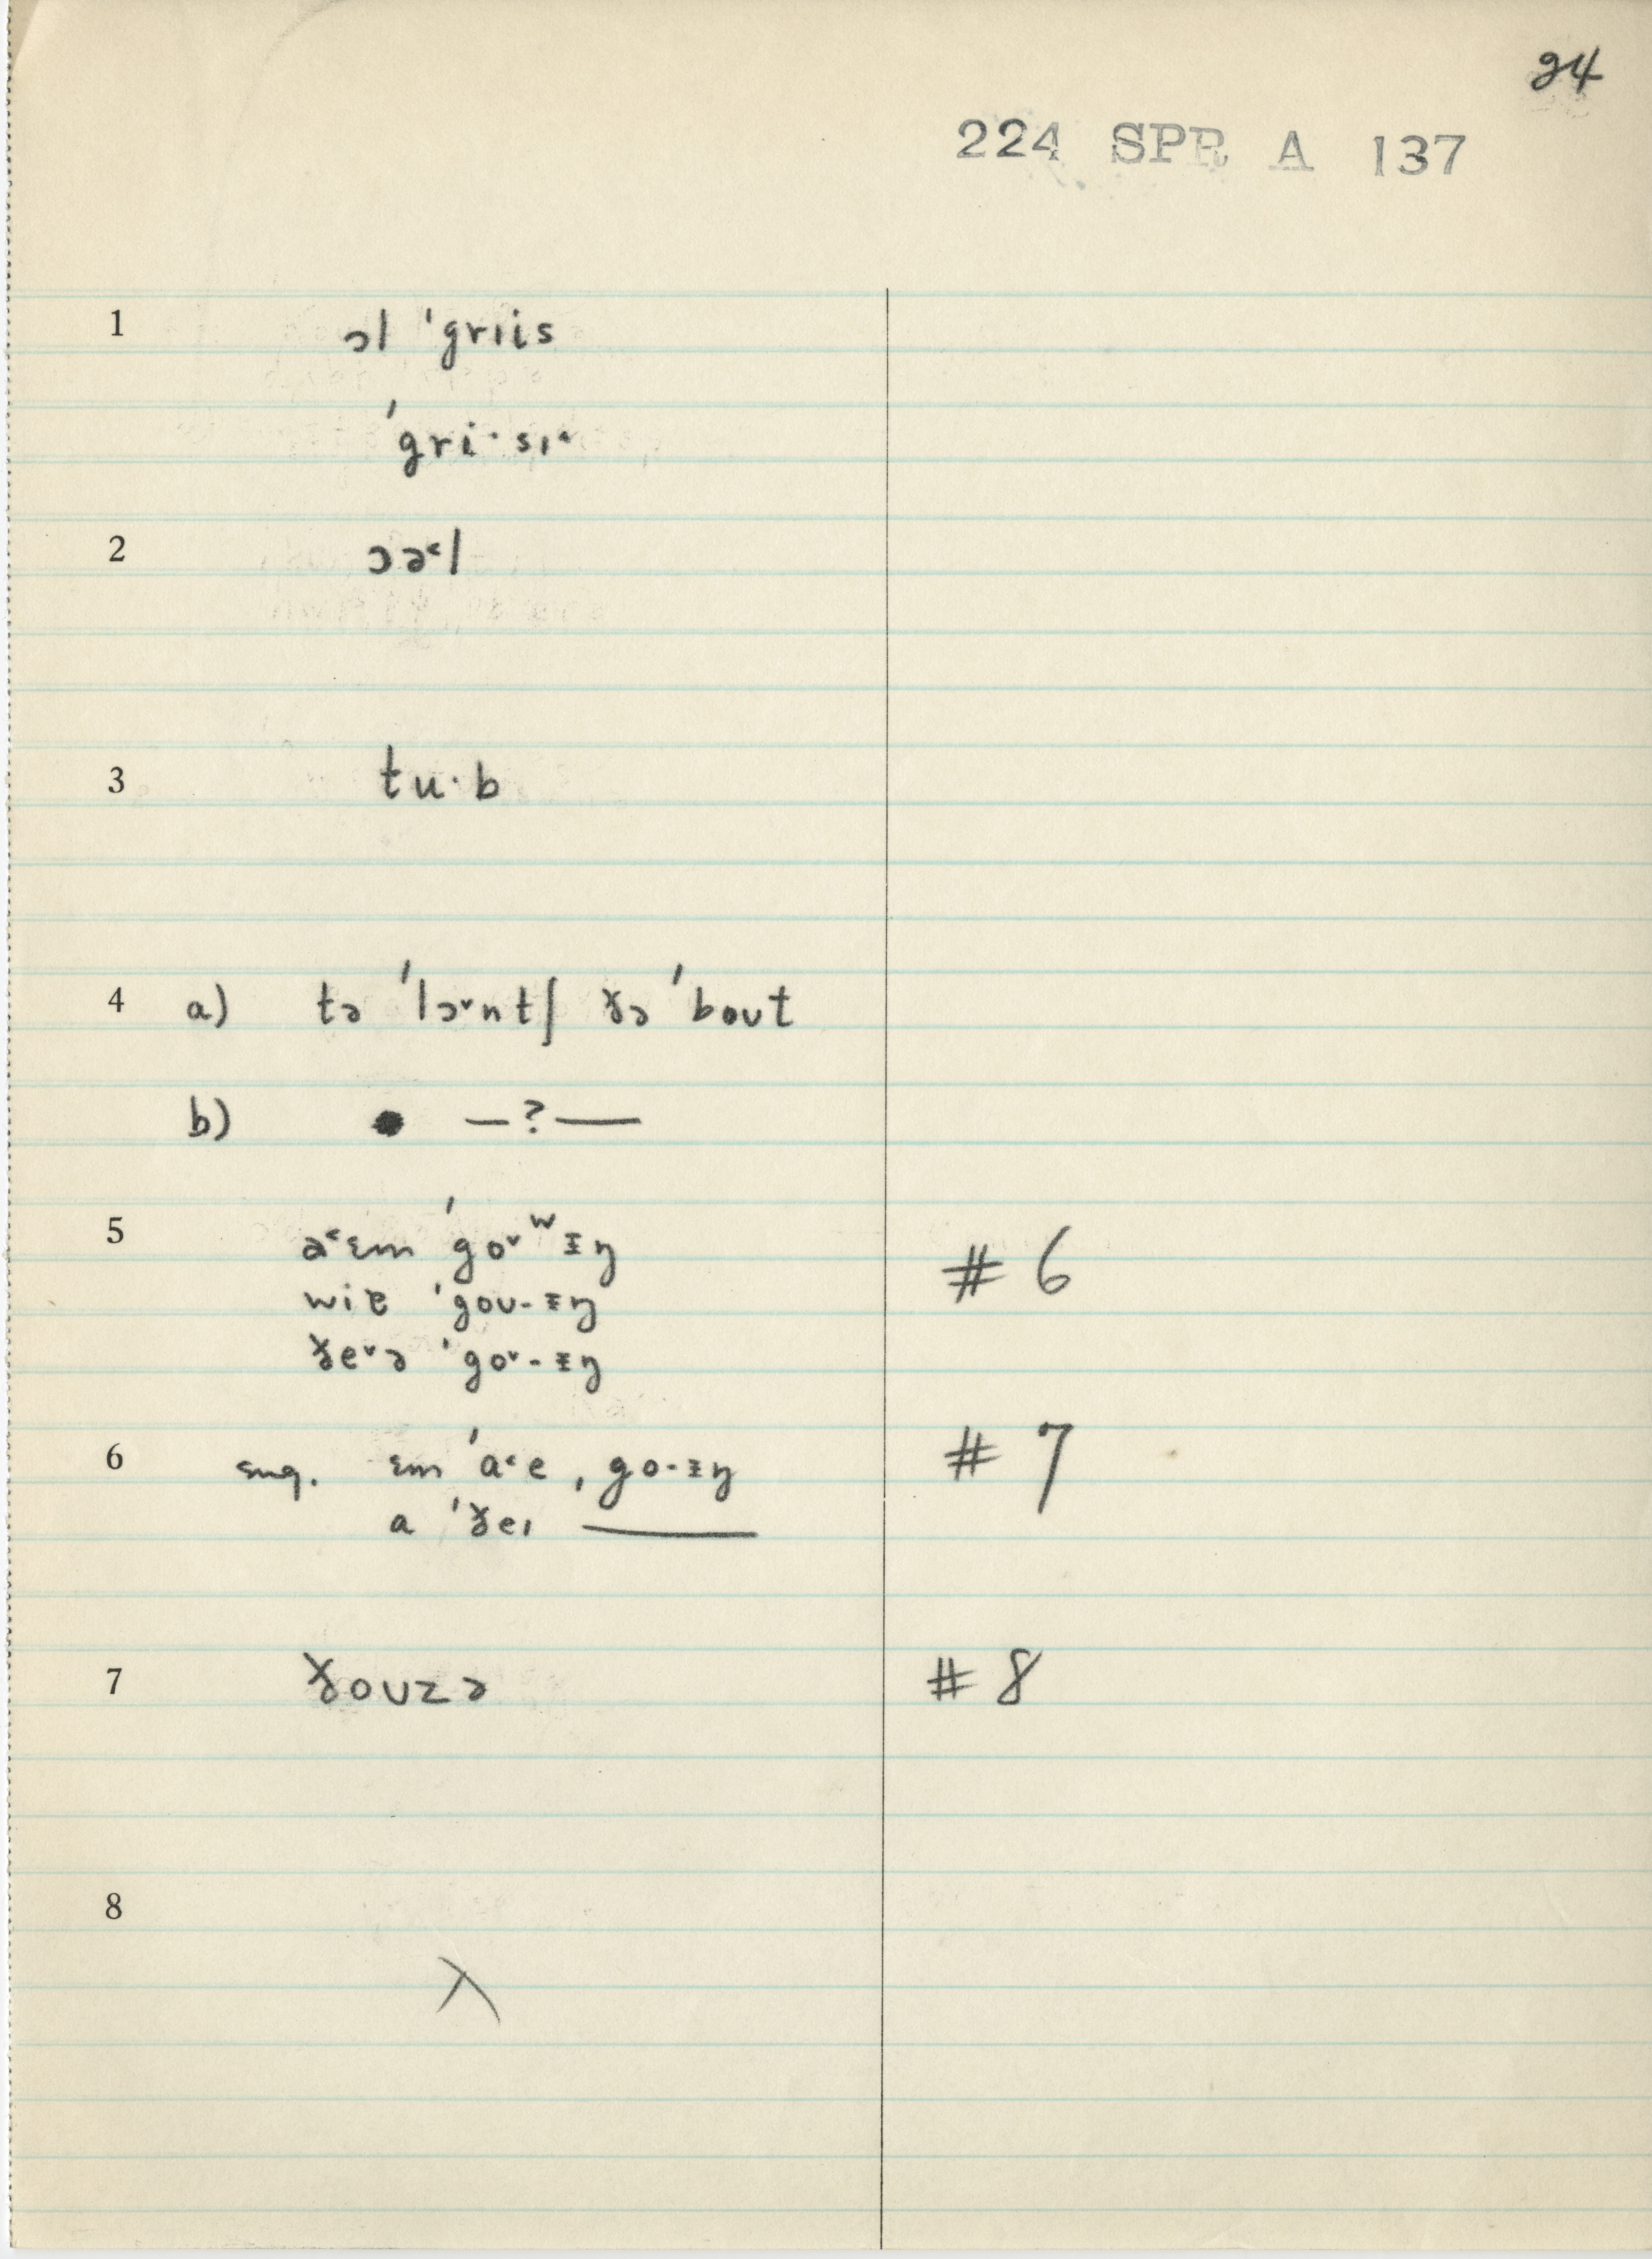 24
224 SPR A 137
1 ɔl 'grɪis
'gri·sɪ˂
2 ɔə˂l
3 tu·b
4 a) tə 'lɔ˅ntʃ ðə 'bout
b) —?—
5 a˂ɪm 'go˅ʷɪŋ # 6
wiɐ 'gou-ɪŋ
ðe˅ə 'go˅-ɪŋ
6 sug. ɪm 'a˂e, go-ɪŋ # 7
a 'ðeɪ ———
7 ðouzə # 8
8